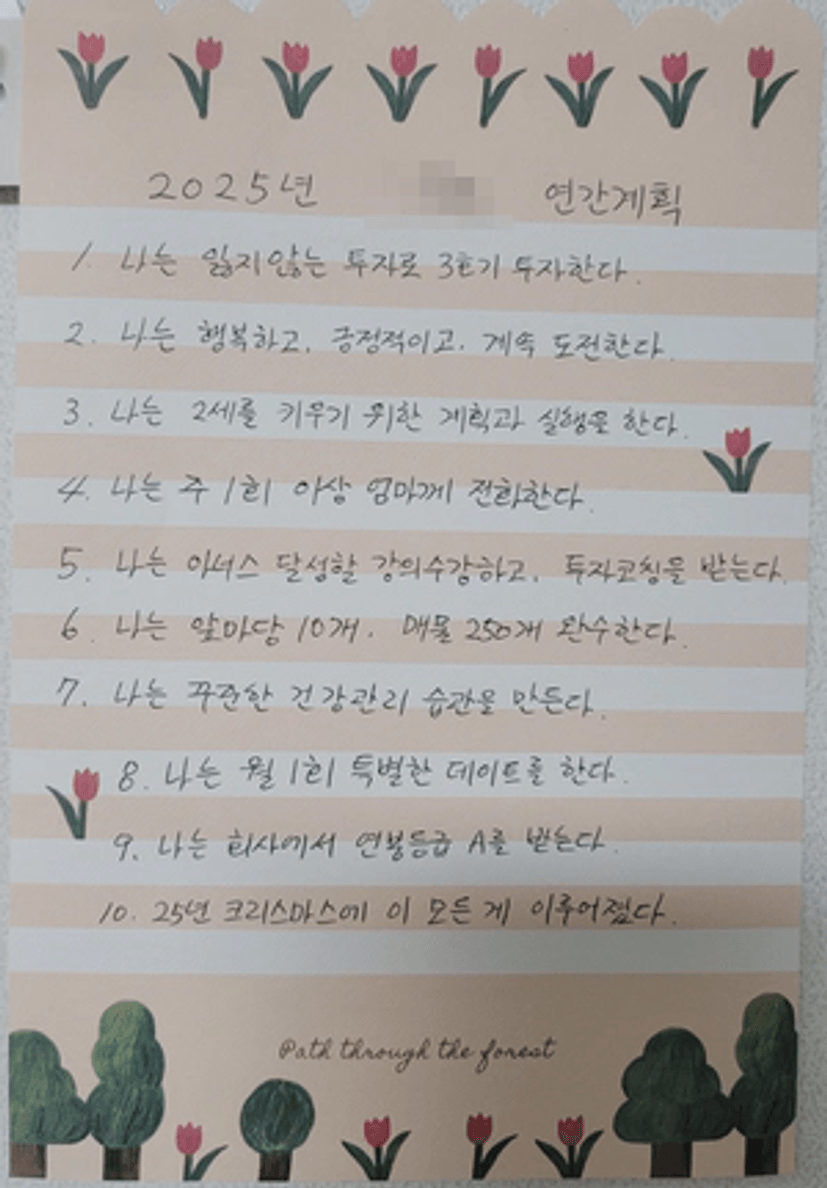 2025년 연간계획
1. 나는 잃지않는 투자로 3호기 투자한다.
2. 나는 행복하고, 긍정적이고, 계속 도전한다.
3. 나는 2세를 키우기 위한 계획과 실행을 한다.
4. 나는 주 1회 이상 엄마께 전화한다.
5. 나는 이너스 달성할 강의수강하고, 투자코칭을 받는다.
6. 나는 앞마당 10개, 매물 250개 완수한다.
7. 나는 꾸준한 건강관리 습관을 만든다.
8. 나는 월 1회 특별한 데이트를 한다.
9. 나는 회사에서 연봉등급 A를 받는다.
10. 25년 크리스마스에 이 모든 게 이루어졌다.
Path through the forest